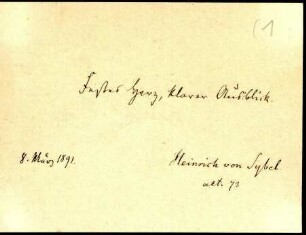 (1
Festes Herz, klarer Ausblick.
8. März 1891.
Heinrich von Sybel
aet. 73